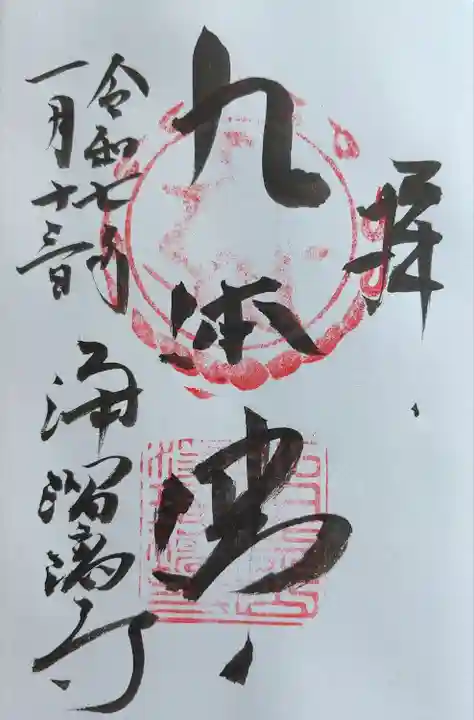 拝
九体佛
令和七年
一月十三日
浄瑠璃寺